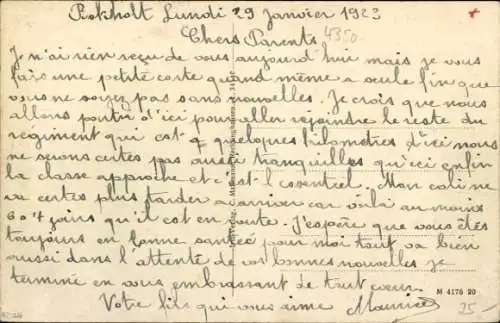 Bokholt Lundi 29 Janvier 1923
Chers Parents 4350
Je n'ai rien reçu de vous aujourd'hui mais je vous
fais une petite carte quand même a seule fin que
vous ne soyez pas sans nouvelles. Je crois que nous
allons partir d'ici pour aller rejoindre le reste du
régiment qui est a quelques kilomètres d'ici nous
ne serons certes pas aussi tranquilles qu'ici enfin
la classe approche et c'est l'essentiel. Mon colis ne
va certes plus tarder a arriver car voilà au moins
6 ou 7 jours qu'il est en route. J'espère que vous êtes
toujours en bonne santé pour moi tout va bien
aussi dans l'attente de vos bonnes nouvelles je
termine en vous embrassant de tout cœur.
Votre fils qui vous aime Maurice
M 4176 20
25